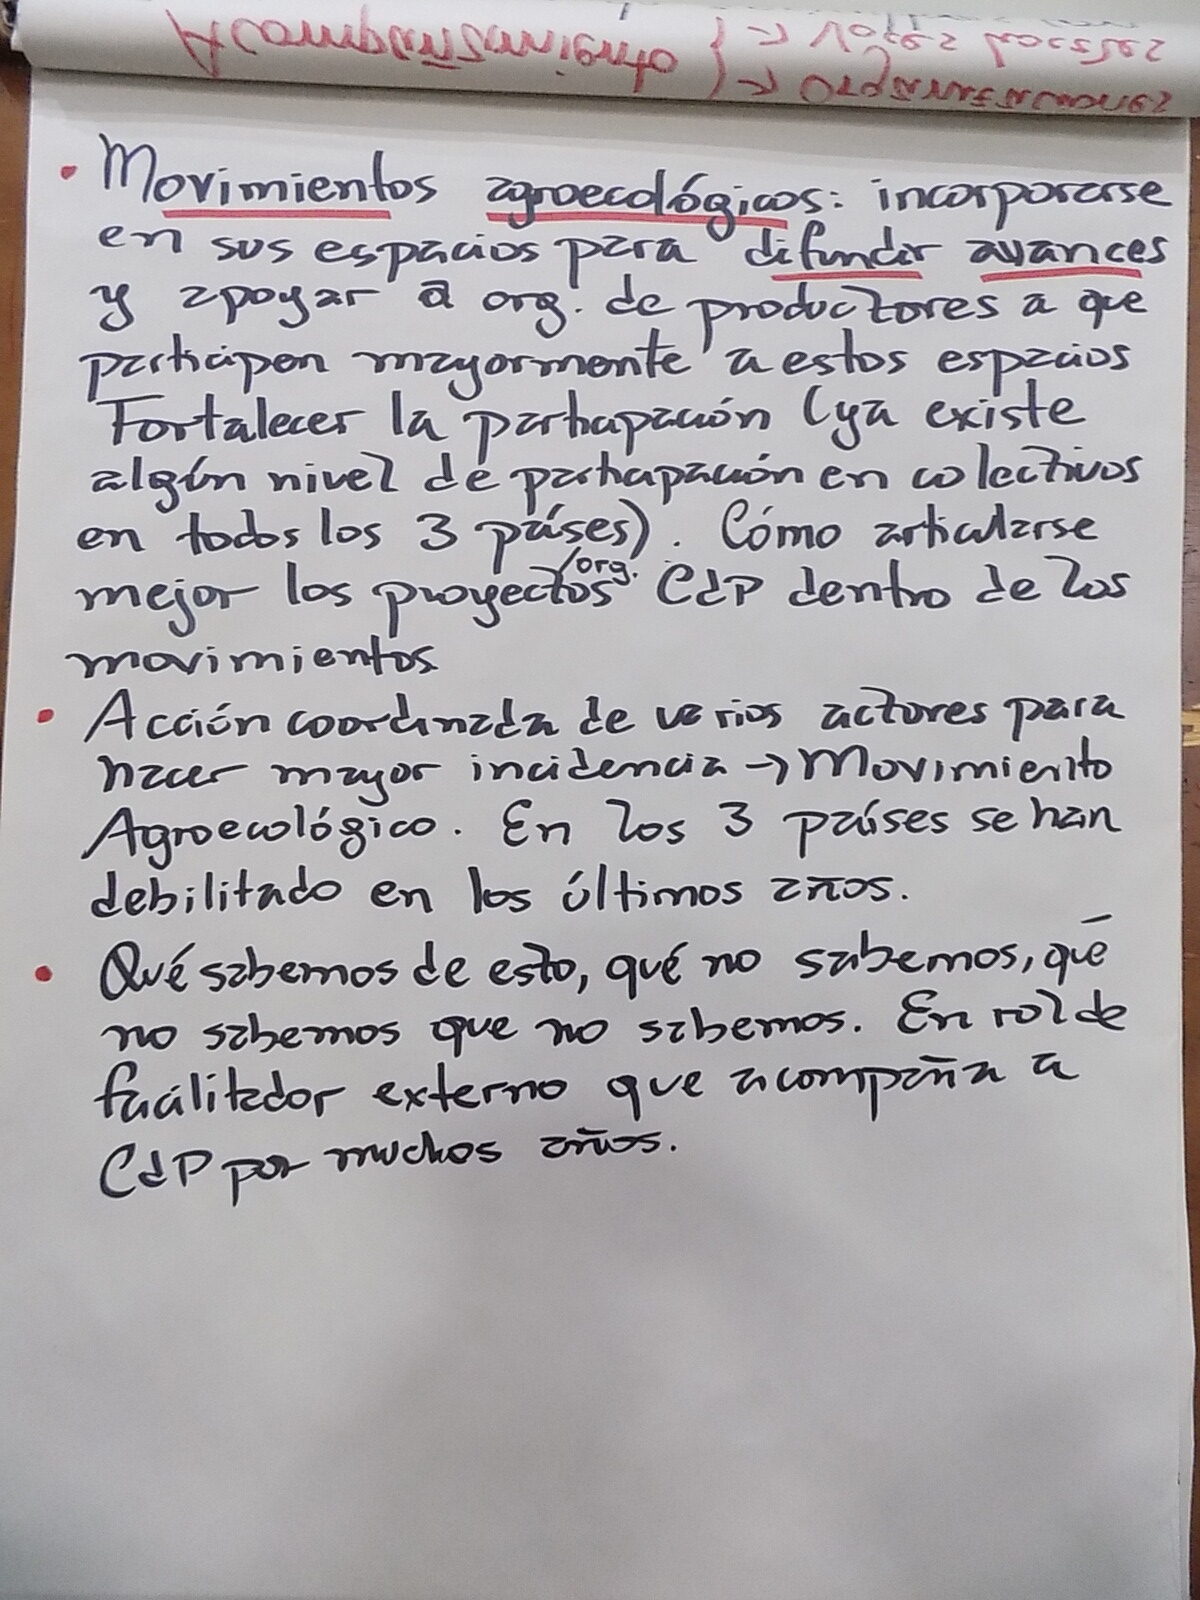 Acompañamiento
• Movimientos agroecológicos: incorporarse
en sus espacios para difundir avances
y apoyar a org. de productores a que
participen mayormente a estos espacios
Fortalecer la participación (ya existe
algún nivel de participación en colectivos
en todos los 3 países). Cómo articularse
mejor los proyectos/org. CdP dentro de los
movimientos
• Acción coordinada de varios actores para
hacer mayor incidencia → Movimiento
Agroecológico. En los 3 países se han
debilitado en los últimos años.
• Qué sabemos de esto, qué no sabemos, qué
no sabemos que no sabemos. En rol de
facilitador externo que acompaña a
CdP por muchos años.